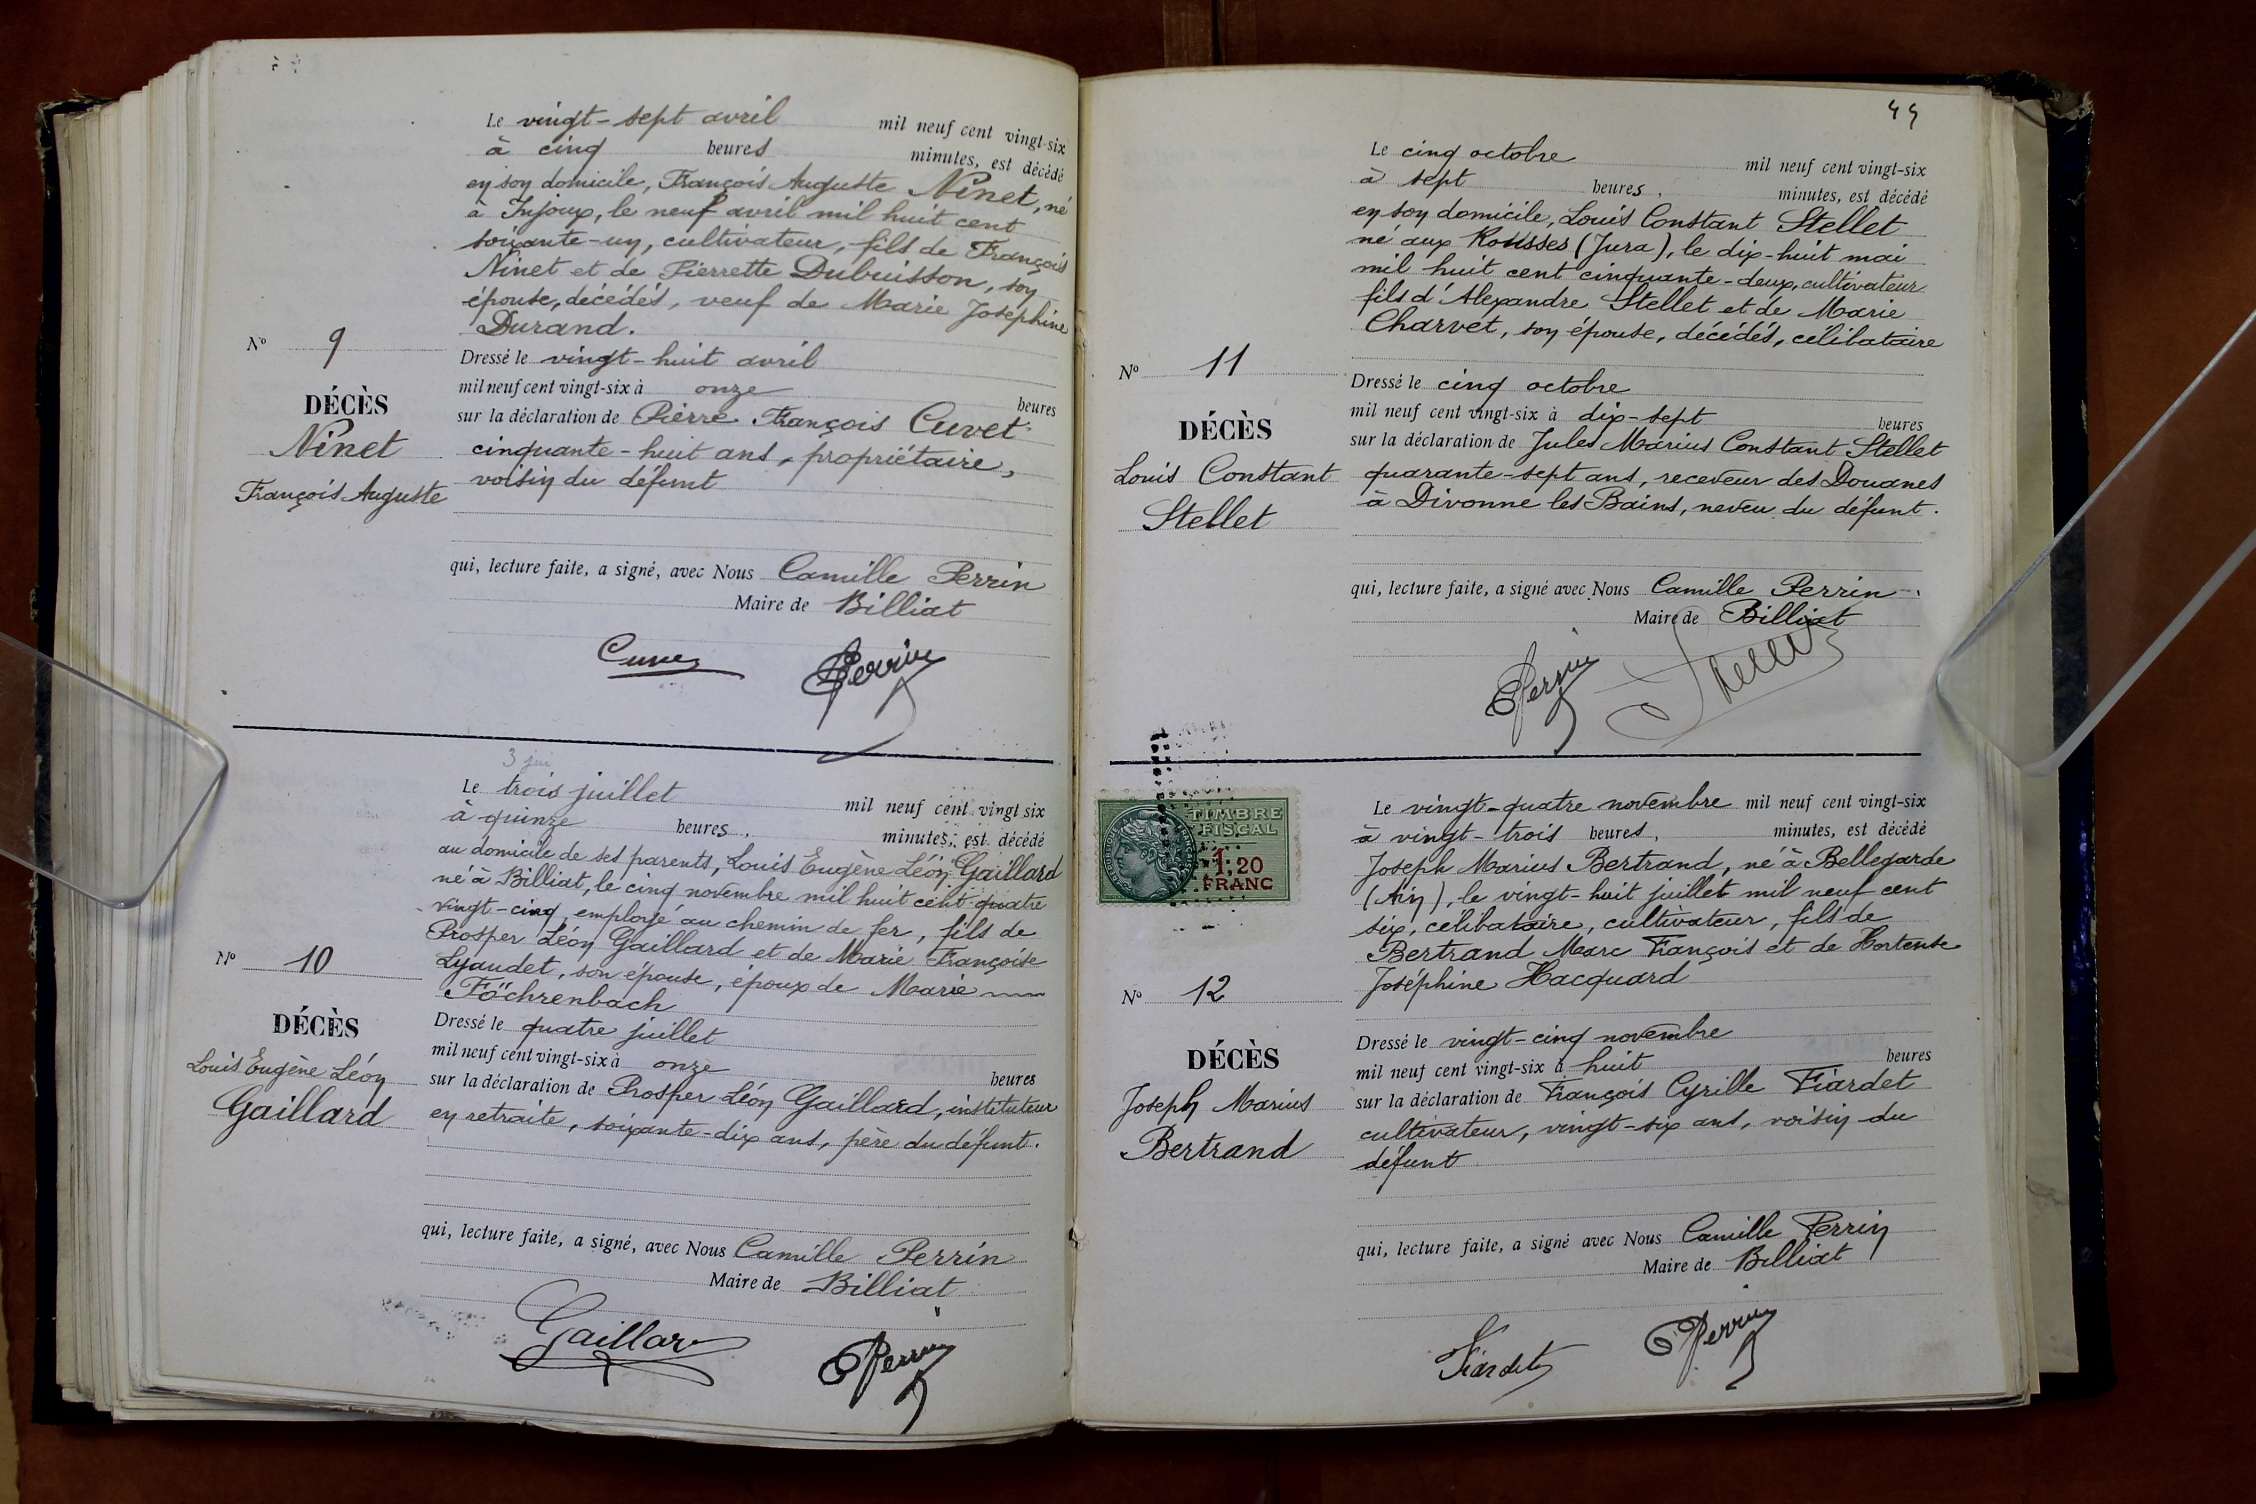 Le vingt-sept avril mil neuf cent vingt-six
à cinq heures minutes, est décédé
en son domicile, François Auguste Ninet, né
à Injoux, le neuf avril mil huit cent
soixante-un, cultivateur, fils de François
Ninet et de Pierrette Dubuisson, son
épouse, décédés, veuf de Marie Joséphine
Durand.
N° 9
DÉCÈS
Ninet
François Auguste
Dressé le vingt-huit avril
mil neuf cent vingt-six à onze heures
sur la déclaration de Pierre François Cuvet
cinquante-huit ans, propriétaire,
voisin du défunt
qui, lecture faite, a signé, avec Nous Camille Perrin
Maire de Billiat
Perrin
Le trois juillet mil neuf cent vingt six
à quinze heures, minutes, est décédé
au domicile de ses parents, Louis Eugène Léon Gaillard
né à Billiat, le cinq novembre mil huit cent quatre
vingt-cinq, employé au chemin de fer, fils de
Prosper Léon Gaillard et de Marie Françoise
Lyaudet, son épouse, époux de Marie
Föchrenbach
N° 10
DÉCÈS
Louis Eugène Léon
Gaillard
Dressé le quatre juillet
mil neuf cent vingt-six à onze heures
sur la déclaration de Prosper Léon Gaillard, instituteur
en retraite, soixante-dix ans, père du défunt.
qui, lecture faite, a signé, avec Nous Camille Perrin
Maire de Billiat
Gaillard
Perrin
44
Le cinq octobre mil neuf cent vingt-six
à sept heures, minutes, est décédé
en son domicile, Louis Constant Stellet
né aux Rousses (Jura), le dix-huit mai
mil huit cent cinquante-deux, cultivateur
fils d'Alexandre Stellet et de Marie
Charvet, son épouse, décédés, célibataire
N° 11
DÉCÈS
Louis Constant
Stellet
Dressé le cinq octobre
mil neuf cent vingt-six à dix-sept heures
sur la déclaration de Jules Marius Constant Stellet
quarante-sept ans, receveur des Douanes
à Divonne les Bains, neveu du défunt.
qui, lecture faite, a signé avec Nous Camille Perrin
Maire de Billiat
Perrin
Stellet
TIMBRE
FISCAL
1,20
FRANC
Le vingt-quatre novembre mil neuf cent vingt-six
à vingt-trois heures, minutes, est décédé
Joseph Marius Bertrand, né à Bellegarde
(Ain), le vingt-huit juillet mil neuf cent
six, célibataire, cultivateur, fils de
Bertrand Marc François et de Hortense
Joséphine Hacquard
N° 12
DÉCÈS
Joseph Marius
Bertrand
Dressé le vingt-cinq novembre
mil neuf cent vingt-six à huit heures
sur la déclaration de François Cyrille Fiardet
cultivateur, vingt-six ans, voisin du
défunt
qui, lecture faite, a signé avec Nous Camille Perrin
Maire de Billiat
Fiardet
Perrin